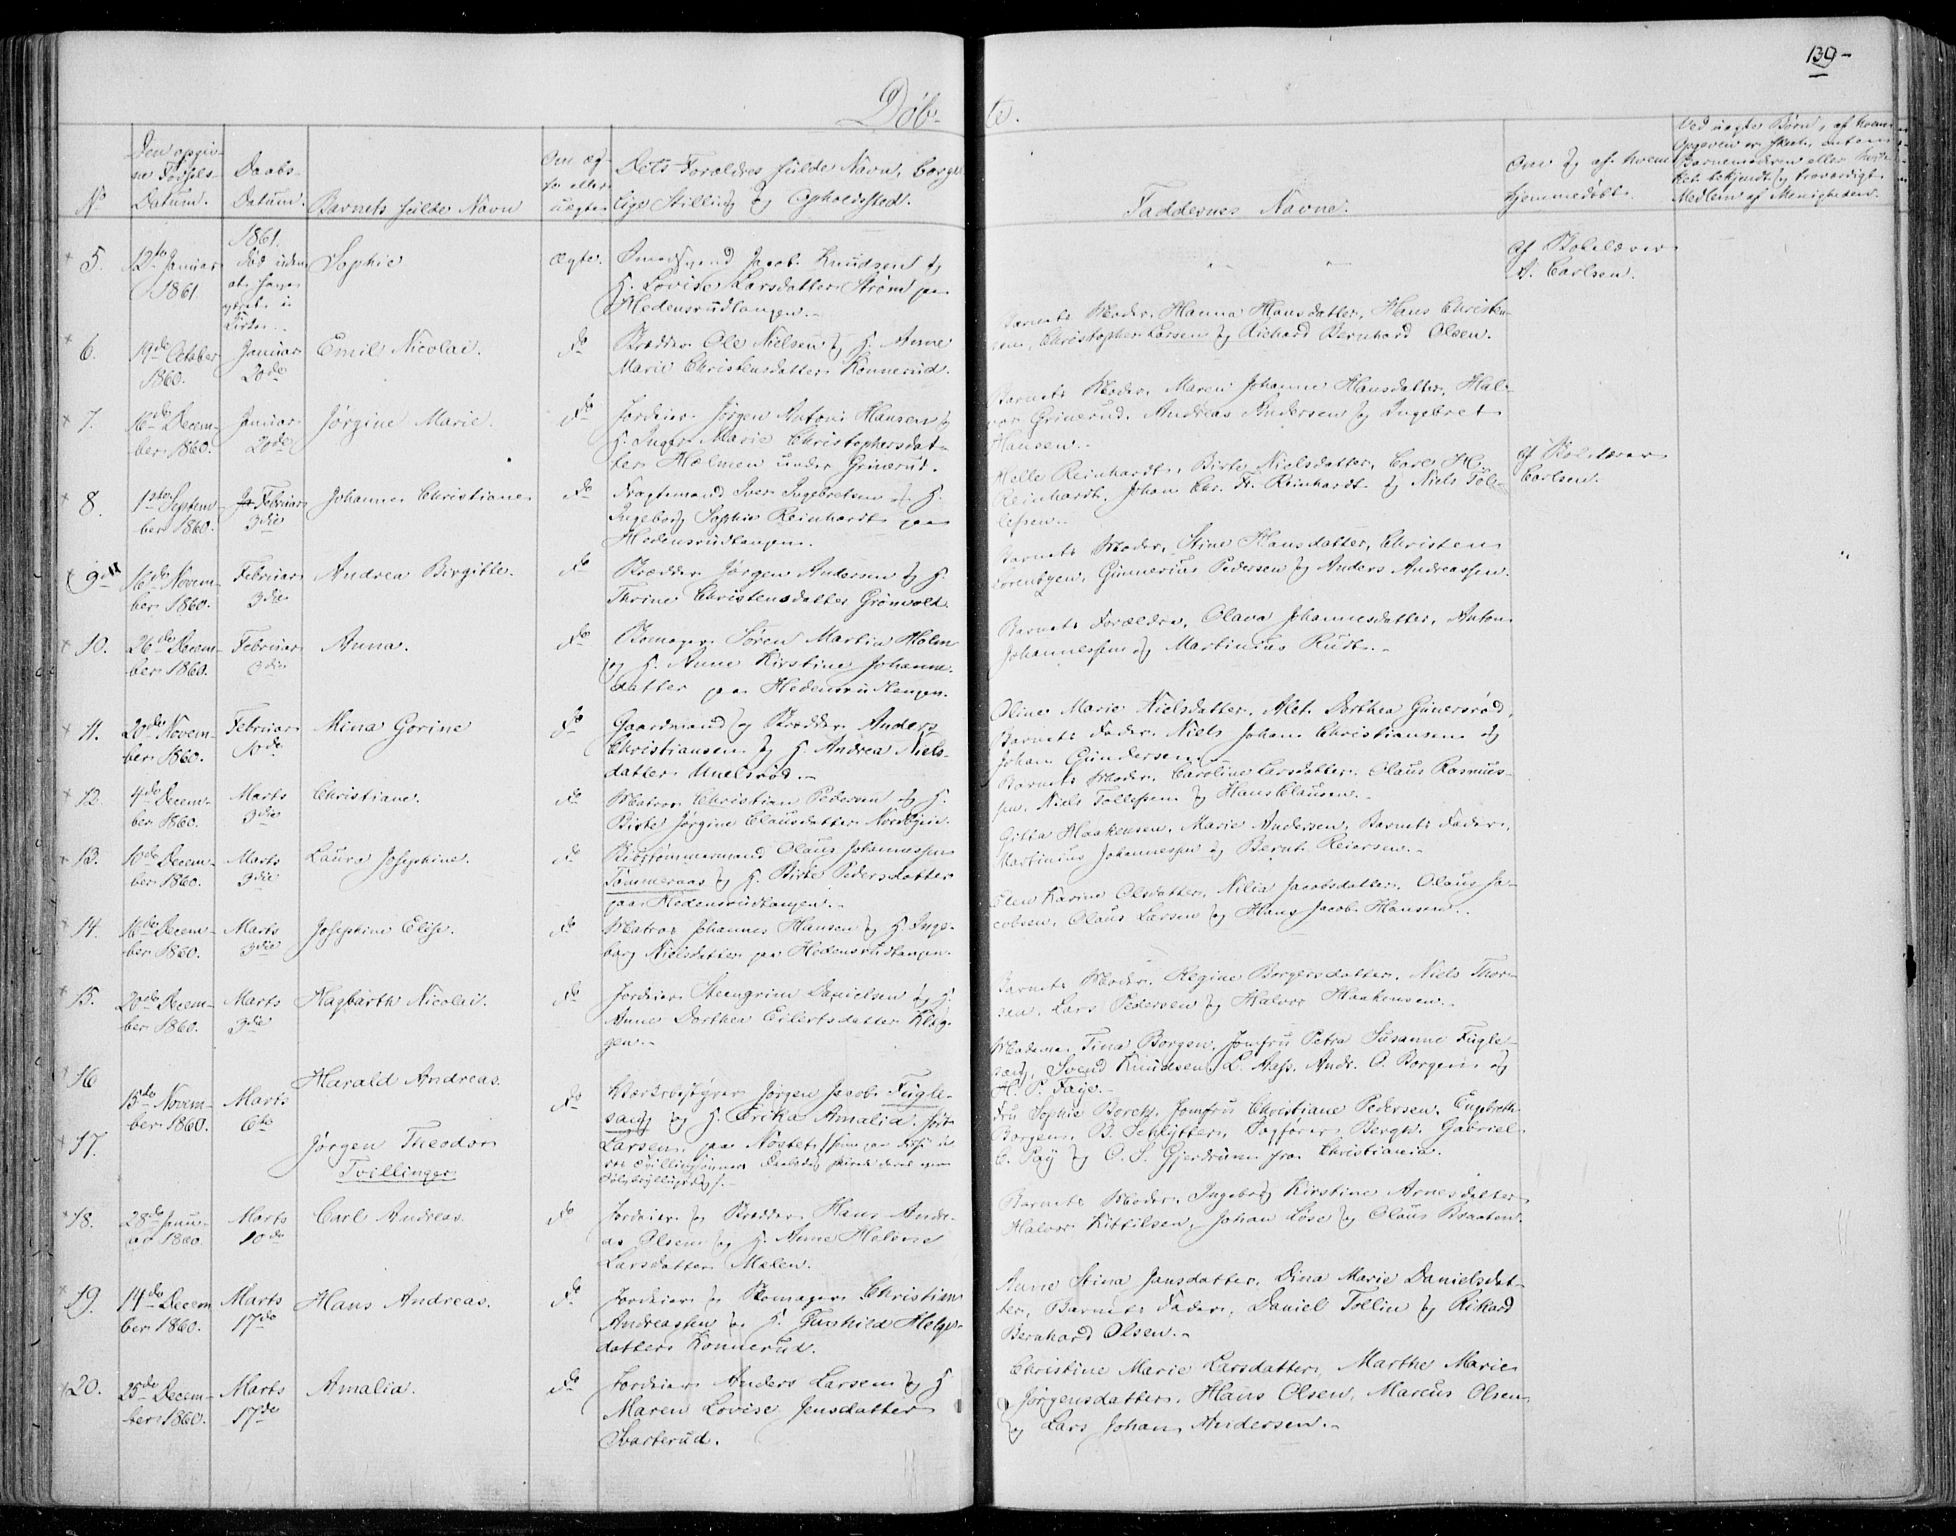 139-
Døb-
te.
No
Den opgiv-
ne Fødsels-
Datum.
Daabs-
Datum.
Barnets fulde Navn
Om æg-
te eller
uægte
Dets Forældres fulde Navn, borger-
lige Stilling og Opholdssted.
Faddernes Navne.
Om og af hvem
hjemmedøbt.
Ved uægte Børn, af hvem
Opgaven er skeet, enten
Barnemoderen eller
bekjendt og troværdigt
Medlem af Menigheden.
5.
12te Januar
1861.
1861.
død uden
at have
været i
Kirke.
Sophie
ægte.
Jacob Knudsen og
H. Lovise Larsdatter Strøm paa
Hedensrudtangen.
af Skolelærer
A. Carlsen.
6.
19de October
1860.
Januar
20de
Emil Nicolai.
do
Skrædder Ole Nielsen og H. Anne
Marie Christensdatter Konnerud.
Barnets Moder, Hanna Hansdatter, Hans Christen-
sen, Christopher Larsen og Richard Bernhard Olsen.
7.
16de Decem-
ber 1860.
Januar
20de
Jørgine Marie.
do
Jordeier Jørgen Anton Hansen og
H. Inger Marie Christophersdat-
ter Holmen under Grinerud.
Barnets Moder, Maren Johanne Hansdatter, Hal-
vor Grinerud, Andreas Andersen og Ingebret
Hansen.
8.
1ste Septem-
ber 1860.
Februar
3die
Johanne Christiane
do
Fragtemand Iver Ingebretsen og H.
Ingeborg Sophie Reinhardt paa
Hedensrudtangen.
Helle Reinhardt, Birte Nielsdatter, Carl H.
Reinhardt, Johan Chr. Fr. Reinhardt og Niels Tol-
lefsen.
af Skolelærer
Carlsen.
9.
16de Novem-
ber 1860.
Februar
3die
Andrea Birgitte.
do
Skrædder Jørgen Andersen og H.
Thrine Christensdatter Grønvold.
Barnets Moder, Stine Hansdatter, Christen
Gunnerius Pedersen og Anders Andreassen.
10.
26de Decem-
ber 1860.
Februar
3die
Anna.
do
Skomager Søren Martin Holm
og H. Anne Kirstine Johanne-
datter paa Hedensrudtangen.
Barnets Forældre, Olava Johannesdatter, Anton
Johannessen og Martinius Rud.
11.
20de Novem-
ber 1860.
Februar
10de
Mina Gorine
do
Gaardmand og Skrædder Anders
Christiansen og H. Andrea Niels-
datter
Oline Marie Nielsdatter, Alet Dorthea Gunersrød,
Barnets Fader, Niels Johan Christiansen og
Johan Gundersen.
12.
4de Decem-
ber 1860.
Marts
3die
Christiane.
do
Matros Christian Pedersen og H.
Birte Jørgine Clausdatter
Barnets Moder, Caroline Larsdatter, Olaus Rasmus-
sen, Niels Tollefsen og Hans Clausen.
13.
10de Decem-
ber 1860.
Marts
3die
Laura Josephine.
do
Skibstømmermand Olaus Johannessen
Tømmeraas og H. Birte Pedersdatter
paa Hedensrudtangen.
Gitta Haakensen, Marie Andersen, Barnets Fader,
Martinius Johannessen og Bernt Reiersen.
14.
16de Decem-
ber 1860.
Marts
3die
Josephine Elise.
do
Matros Johannes Hansen og H. Inge-
borg Nielsdatter paa Hedensrudtangen.
Ellen Karine Olsdatter, Nilia Jacobsdatter, Olaus Ja-
cobsen, Olaus Larsen og Hans Jacob Hansen.
15.
20de Decem-
ber 1860.
Marts
3die
Hagbarth Nicolai.
do
Jordeier Steengrim Danielsen og H.
Anne Dorthea Eilertsdatter Kløg-
gen.
Barnets Moder, Regine Borgersdatter, Niels Thor-
sen, Lars Pedersen og Halvor Haakensen.
16
Harald Andreas.
15de Novem-
ber 1860.
Marts
6te
do
Værksbestyrer Jørgen Jacob Fugle-
sang og H. Erika Amalia, født
Larsen, paa Nøstet,
Madame Tina Borgen, Jomfru Petra Susanne Fugle-
sang, Svend Knudsen, L. Aass, Andr. O. Borgen og
H. P. Faye.
17.
Jørgen Theodor
Tvillinger
Fru Sophie Borett, Jomfru Christiane Pedersen, Engebreth
Borgen, B. Schlytter, Sagfører Bergw. Gabriel
C. Fay og O. S. Gjerdrum fra Christiania.
18.
28de Janu-
ar 1860.
Marts
10de
Carl Andreas.
do
Jordeier og Skrædder Hans Andre-
as Olsen og H. Anne Helvine
Larsdatter Mælen.
Barnets Moder, Ingeborg Kirstine Arnesdatter
Halvor Kittilsen, Johan Løse og Olaus Braaten.
19.
14de Decem
ber 1860.
Marts
17de
Hans Andreas.
do
Jordeier og Skomager Christian
Andreassen og H. Gunhild Helge-
datter Konnerud.
Anne Stina Jansdatter, Dina Marie Danielsdat-
ter, Barnets Fader, Daniel Tollin og Rikard
Bernhard Olsen.
20.
25de Decem-
ber 1860.
Marts
17de
Amalia.
do
Jordeier Anders Larsen og H
Maren Lovise Jensdatter
Svarterud.
Christine Marie Larsdatter, Marthe Marie
Jørgensdatter, Hans Olsen, Marcus Olsen
og Lars Johan Andersen.